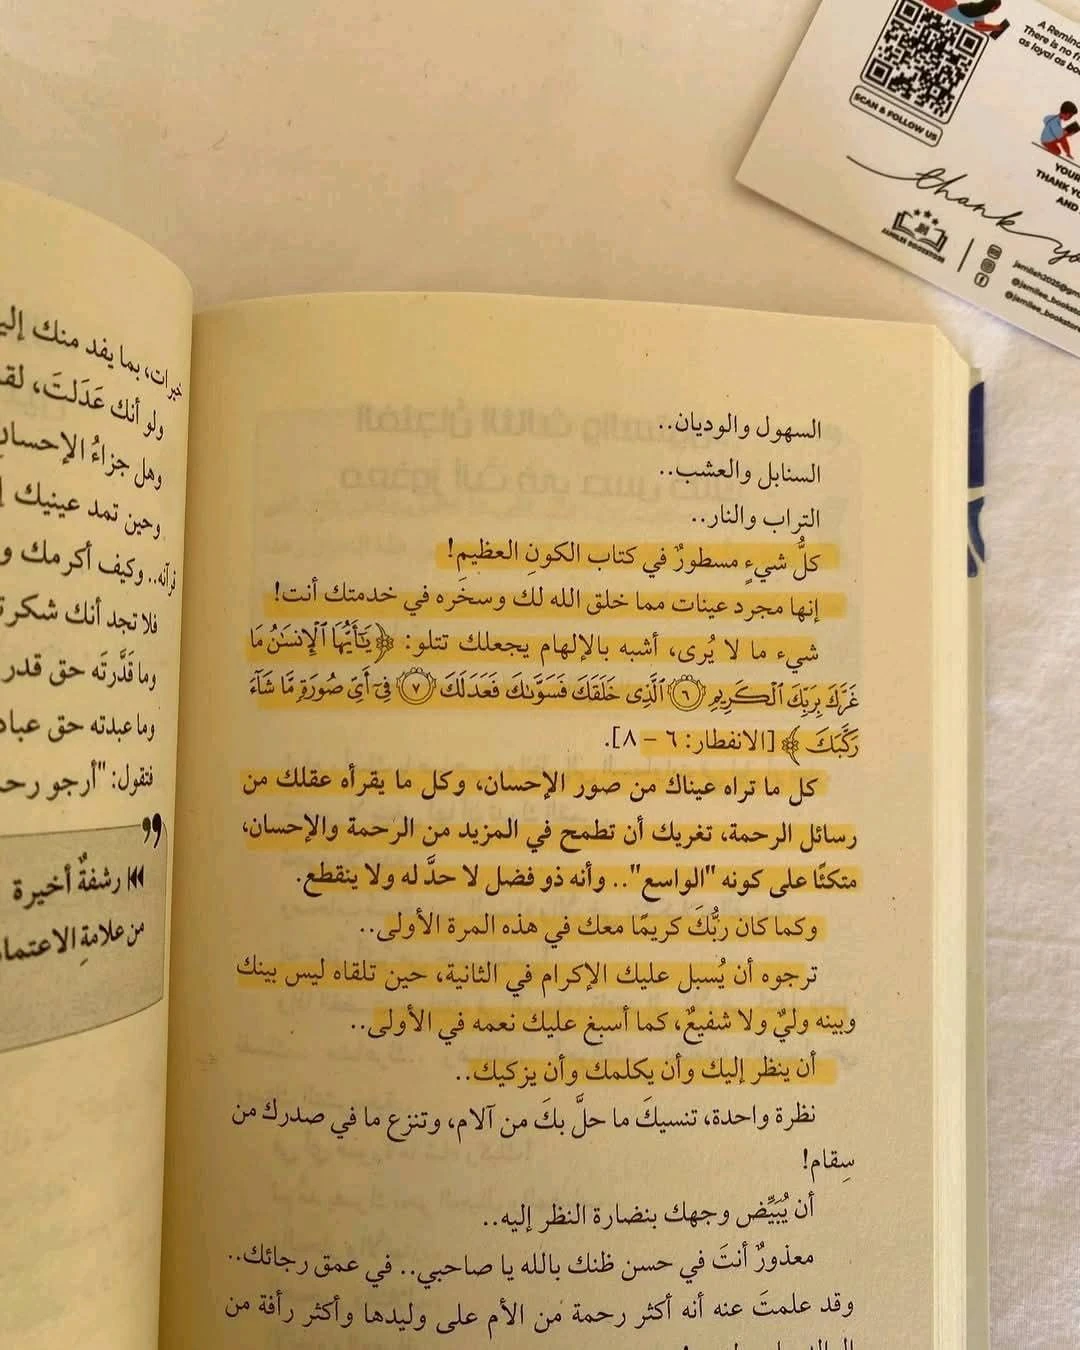 A Remind
There is no fr
as loyal as bo
SCAN & FOLLOW US
YOUR
THANK YO
AND
thank yo
JAMILEE BOOKSTORE
jamilah2025@gm
@jamilee_bookstore
@jamilee_bookstore
خبرات، بما يفد منك إلي
ولو أنك عَدَلتَ، لقد
وهل جزاءُ الإحسان
وحين تمد عينيك إ
قرآنه.. وكيف أكرمك و
فلا تجد أنك شكرت
وما قَدَّرتَه حق قدر
وما عبدته حق عباد
فتقول: "أرجو رحم
رشفةٌ أخيرة
من علامةِ الاعتما
السهول والوديان..
السنابل والعشب..
التراب والنار..
كلُّ شيءٍ مسطورٌ في كتاب الكونِ العظيم!
إنها مجرد عينات مما خلق الله لك وسخَره في خدمتك أنت!
شيء ما لا يُرى، أشبه بالإلهام يجعلك تتلو: ﴿يَٰٓأَيُّهَا ٱلْإِنسَٰنُ مَا
غَرَّكَ بِرَبِّكَ ٱلْكَرِيمِ ٦ ٱلَّذِى خَلَقَكَ فَسَوَّىٰكَ فَعَدَلَكَ ٧ فِىٓ أَىِّ صُورَةٍ مَّا شَآءَ
رَكَّبَكَ﴾ [الانفطار: ٦ – ٨].
كل ما تراه عيناك من صور الإحسان، وكل ما يقرأه عقلك من
رسائل الرحمة، تغريك أن تطمح في المزيد من الرحمة والإحسان،
متكئًا على كونه "الواسع".. وأنه ذو فضل لا حدَّ له ولا ينقطع.
وكما كان ربُّكَ كريمًا معك في هذه المرة الأولى..
ترجوه أن يُسبل عليك الإكرام في الثانية، حين تلقاه ليس بينك
وبينه وليٌ ولا شفيعٌ، كما أسبغ عليك نعمه في الأولى..
أن ينظر إليك وأن يكلمك وأن يزكيك..
نظرة واحدة، تنسيكَ ما حلَّ بكَ من آلام، وتنزع ما في صدرك من
سِقام!
أن يُبَيِّض وجهك بنضارة النظر إليه..
معذورٌ أنتَ في حسن ظنك بالله يا صاحبي.. في عمق رجائك..
وقد علمتَ عنه أنه أكثر رحمة من الأم على وليدها وأكثر رأفة من